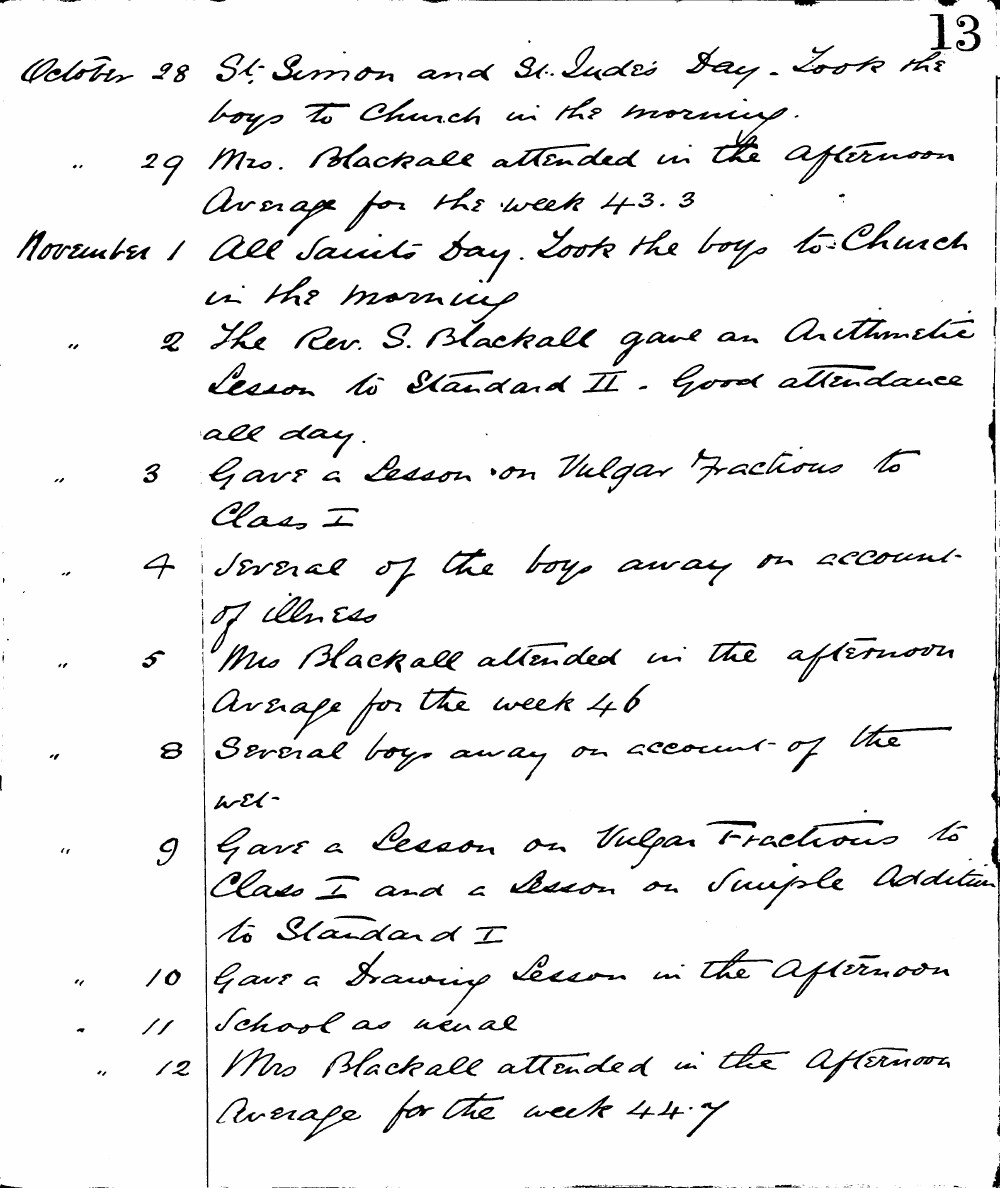 13
October 28 St. Simon and St. Jude's Day. Took the
boys to Church in the morning.
" 29 Mrs. Blackall attended in the Afternoon
Average for the week 43.3
November 1 All Saints Day. Took the boys to Church
in the morning
" 2 The Rev. S. Blackall gave an Arithmetic
Lesson to Standard II. Good attendance
all day.
" 3 Gave a Lesson on Vulgar Fractions to
Class I
" 4 Several of the boys away on account
of illness
" 5 Mrs Blackall attended in the afternoon
Average for the week 46
" 8 Several boys away on account of the
wet
" 9 Gave a Lesson on Vulgar Fractions to
Class I and a Lesson on Simple Addition
to Standard I
" 10 Gave a Drawing Lesson in the Afternoon
" 11 School as usual
" 12 Mrs Blackall attended in the Afternoon
Average for the week 44.7